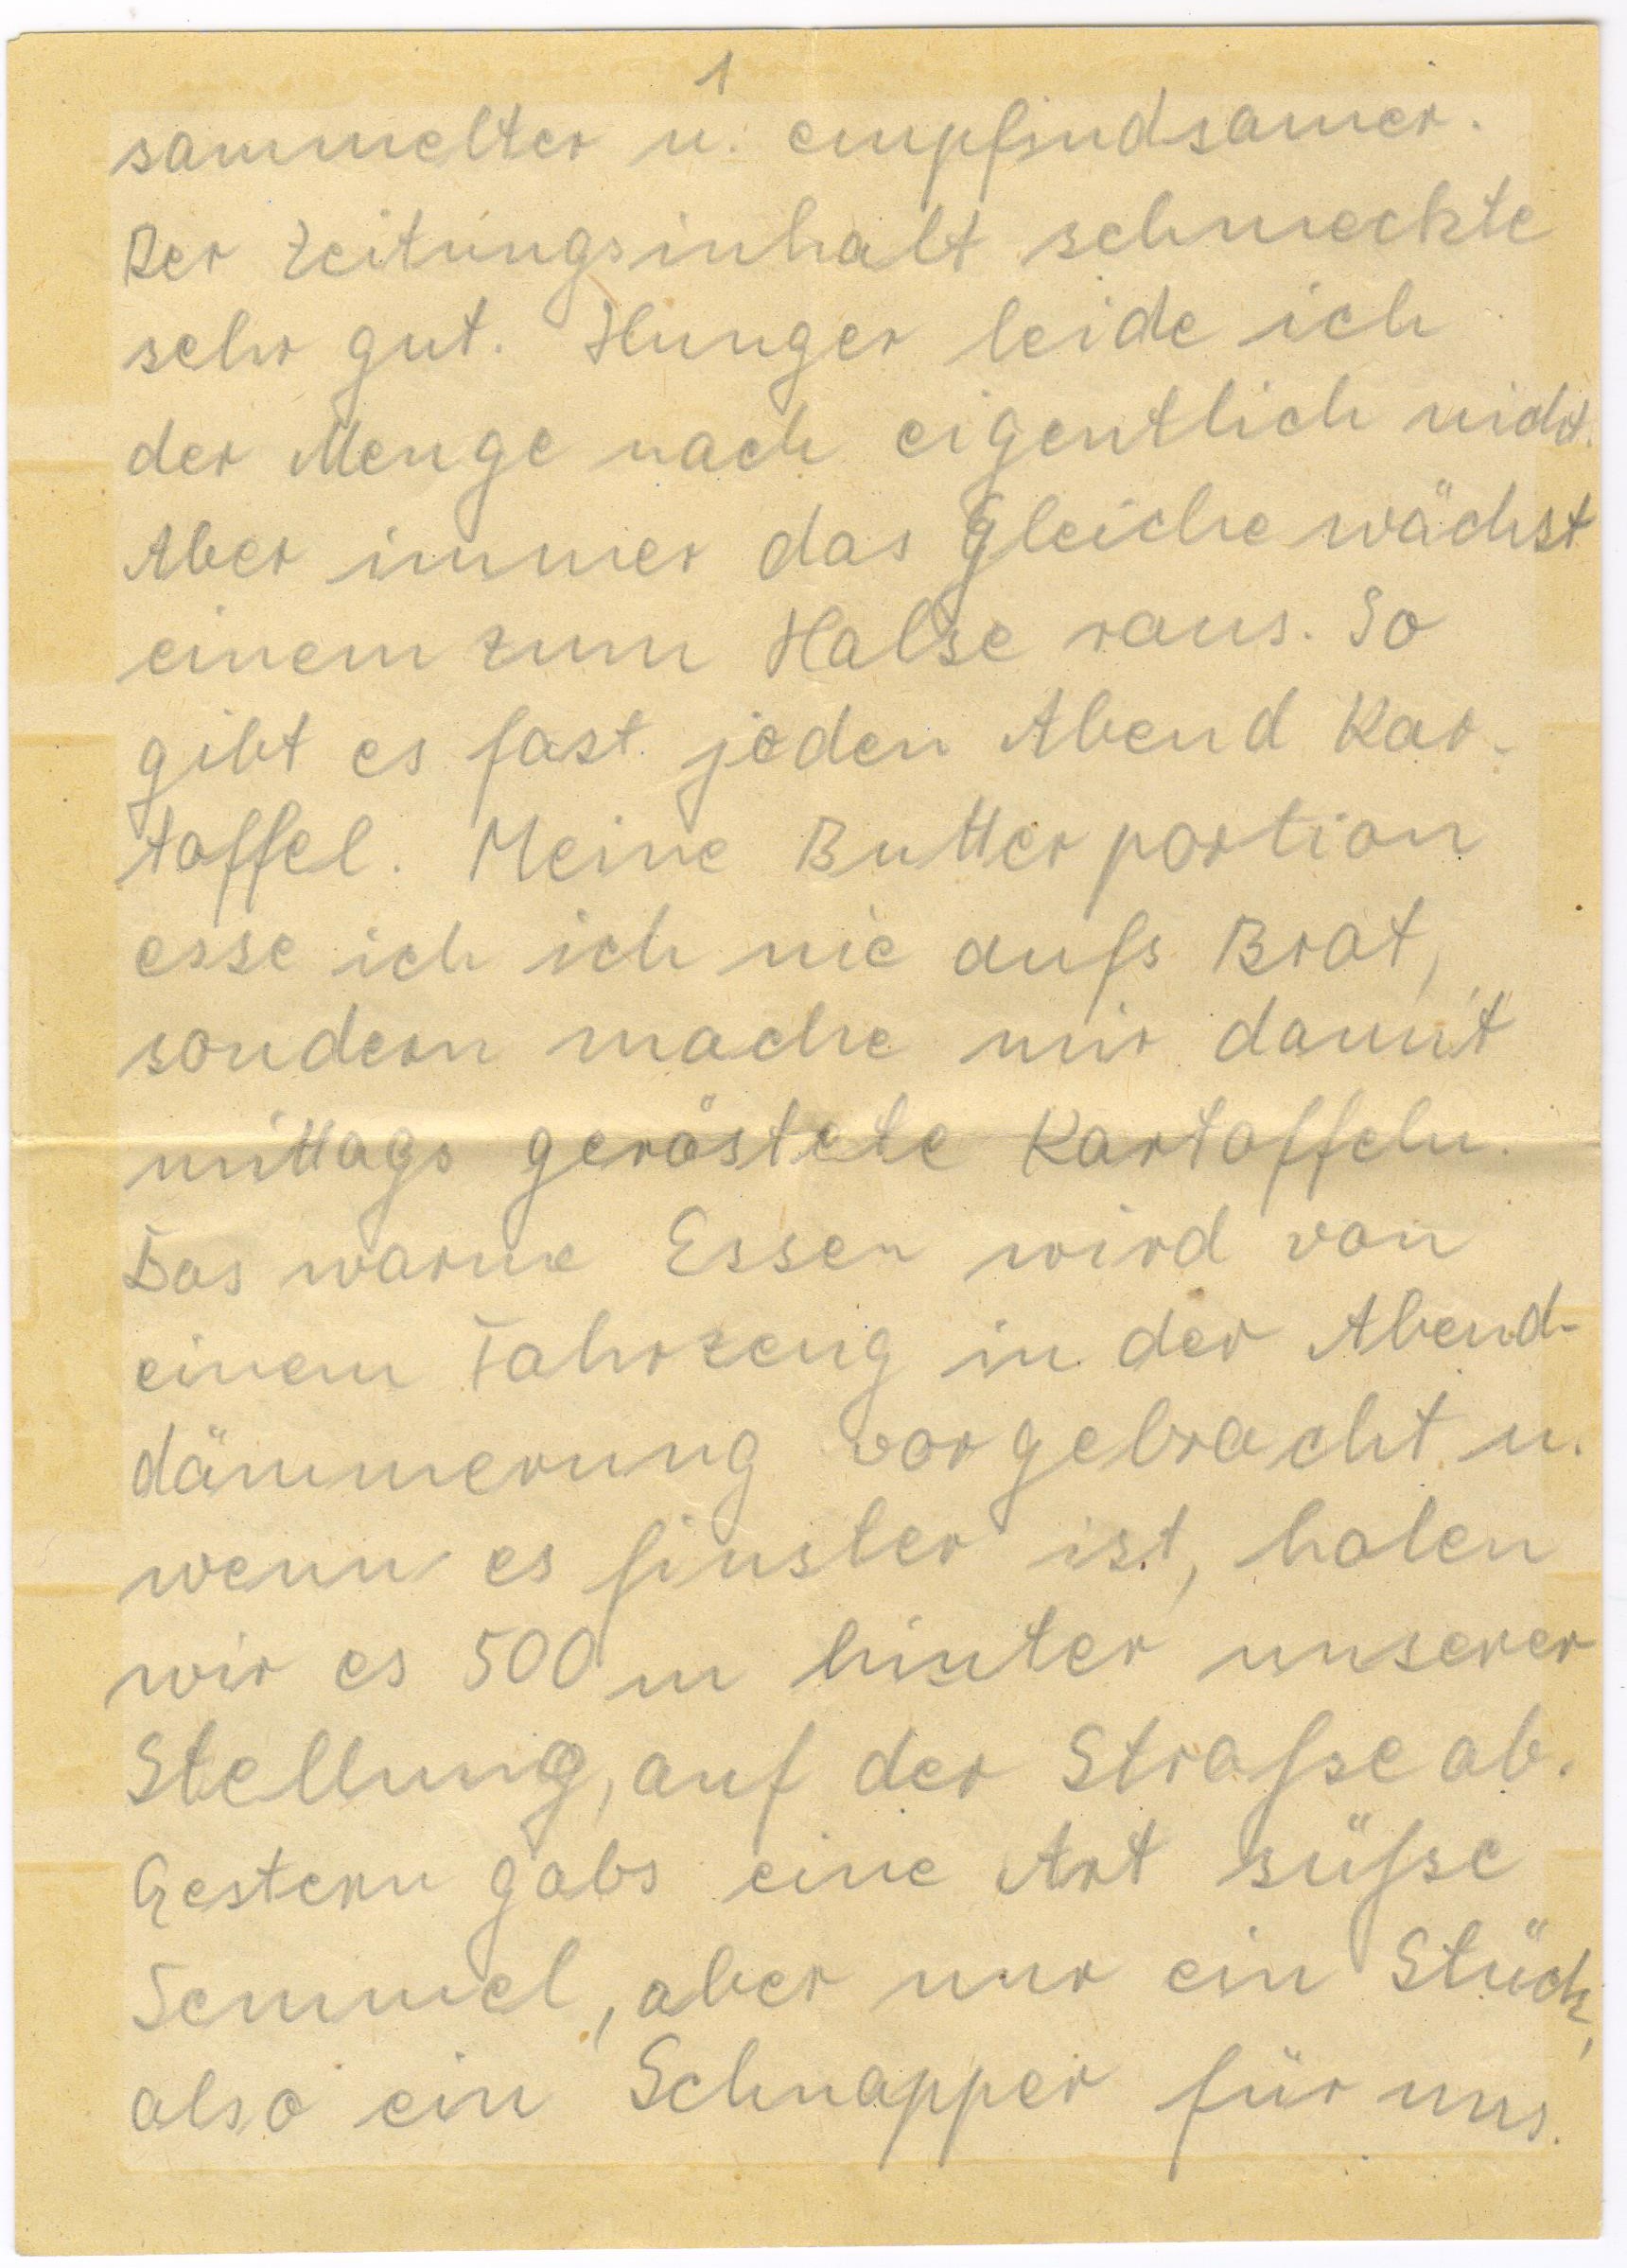 1
sammelter u. empfindsamer.
Der Zeitungsinhalt schmeckte
sehr gut. Hunger leide ich
der Menge nach eigentlich nicht.
Aber immer das Gleiche wächst
einem zum Halse raus. So
gibt es fast jeden Abend Kar-
toffel. Meine Butterportion
esse ich ich nie aufs Brot,
sondern mache mir damit
mittags geröstete Kartoffeln.
Das warme Essen wird von
einem Fahrzeug in der Abend-
dämmerung vorgebracht u.
wenn es finster ist, holen
wir es 500 m hinter unserer
Stellung, auf der Straße ab.
Gestern gabs eine Art süße
Semmel, aber nur ein Stück,
also ein Schnapper für uns.